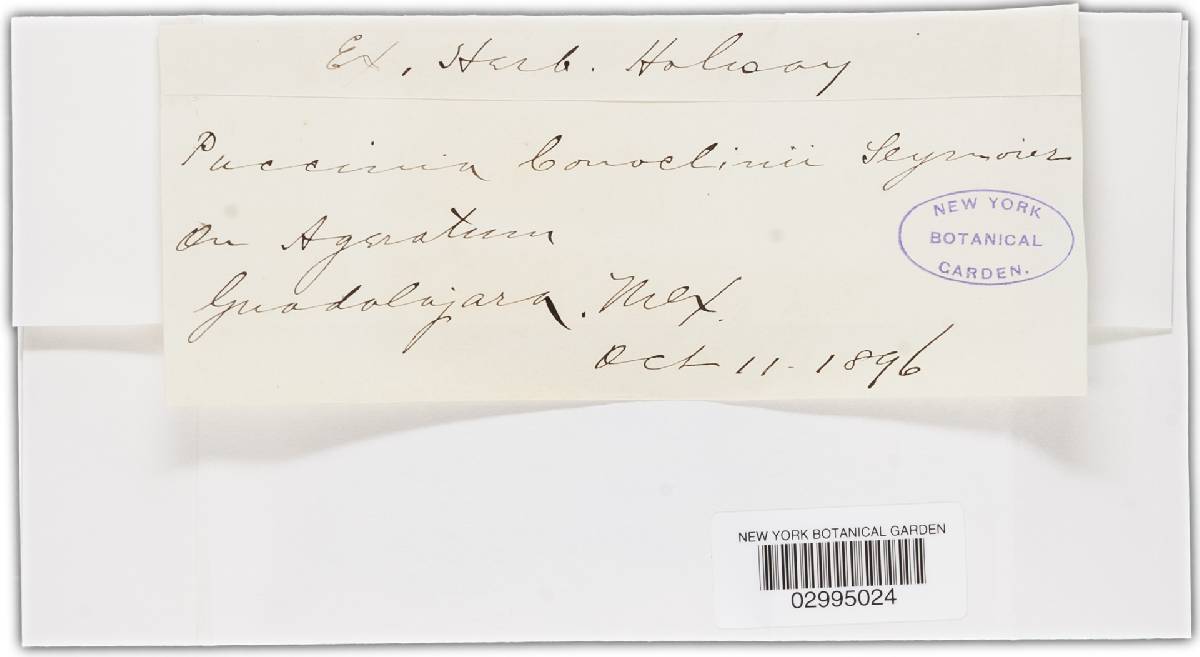 Ex. Herb. Holway
Puccinia Conoclinii Seymour
On Ageratum
Guadalajara. Mex.
Oct 11 - 1896
NEW YORK
BOTANICAL
GARDEN.
NEW YORK BOTANICAL GARDEN
02995024